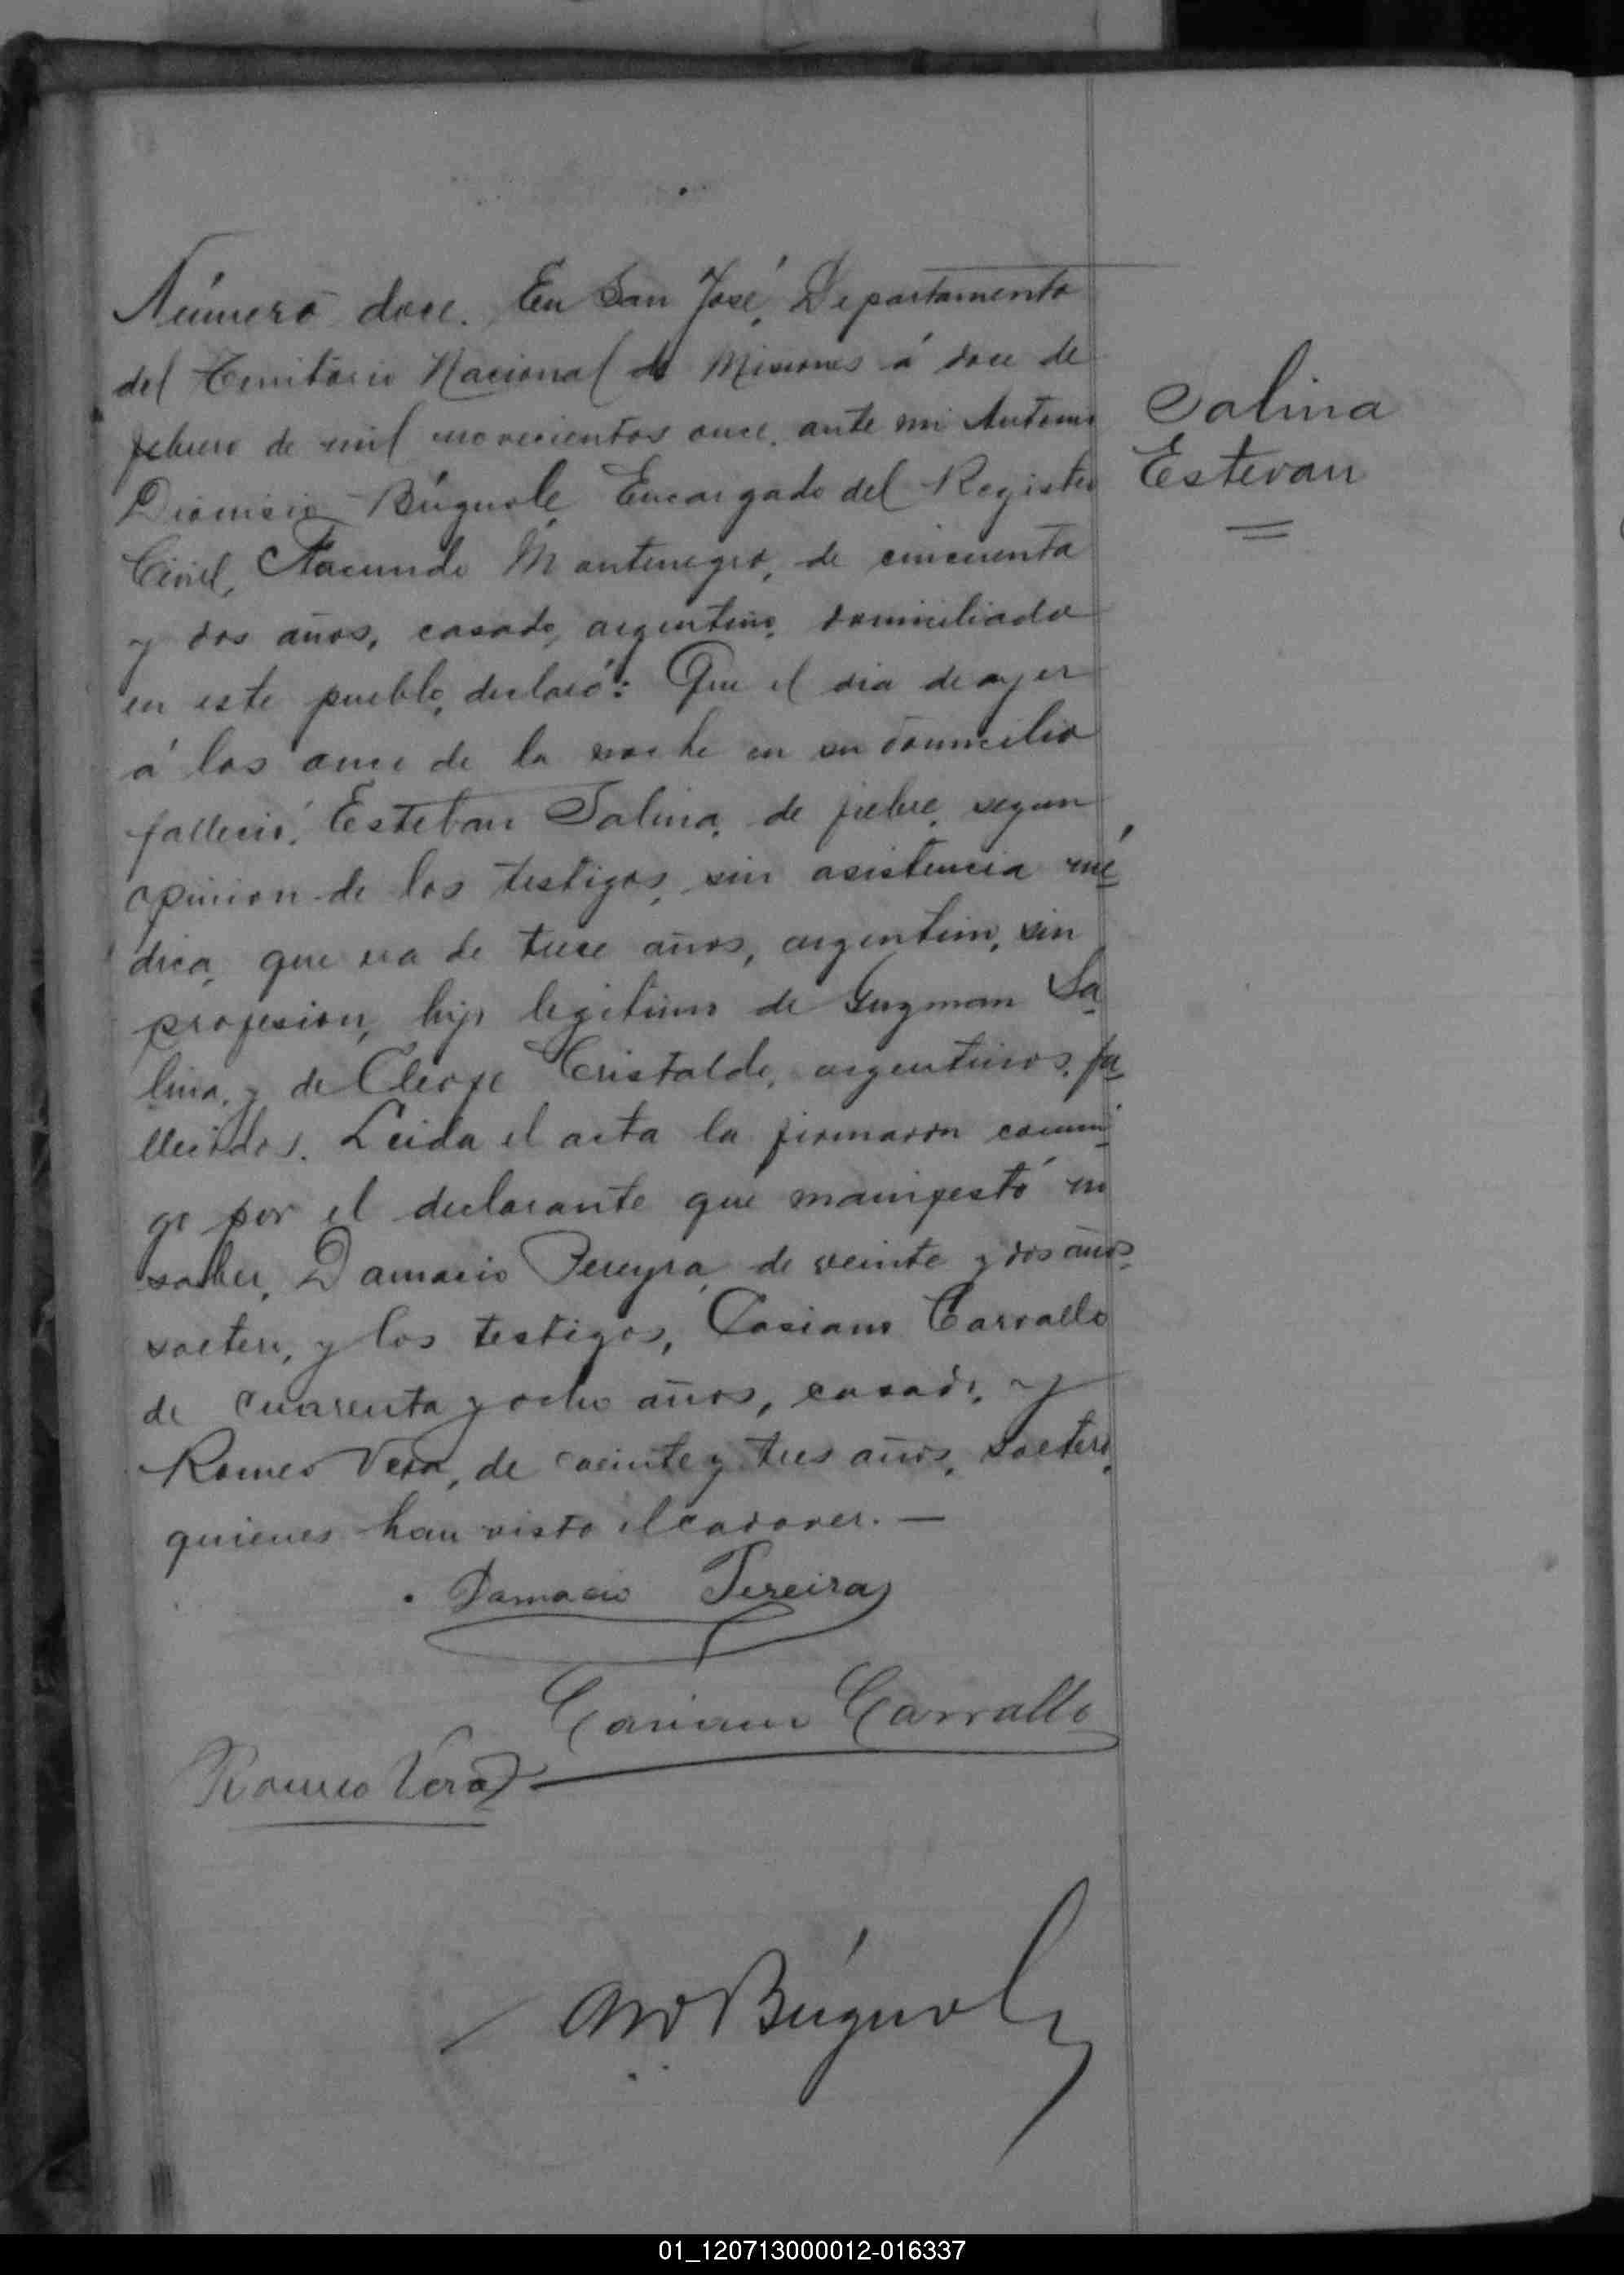 Número doce. En San José, Departamento
del Territorio Nacional de Misiones á doce de
febrero de mil novecientos once, ante mi Antonio
Dionisio Búgnole Encargado del Registro
Civil, Facundo Montenegro, de cincuenta
y dos años, casado, argentino, domiciliado
en este pueblo, declaró: Que el dia de ayer
á las once de la noche en su domicilio
falleció, Esteban Salina, de fiebre, segun
opinion de los testigos, sin asistencia mé
dica, que era de trece años, argentino, sin
profesion, hijo legitimo de Guzman Sa
lina, y de Cleofe Cristaldo, argentinos, fa
llecidos. Leida el acta la firmaron conmi
go por el declarante que manifestó no
saber, Damacio Pereyra, de veinte y dos años
soltero, y los testigos, Casiano Carvallo
de cuarenta y ocho años, casado, y
Romeo Vera, de veinte y tres años, soltero,
quienes han visto el cadaver. —
Salina
Estevan
Damacio Pereira
Casiano Carvallo
Romeo Vera
Búgnole
01_120713000012-016337